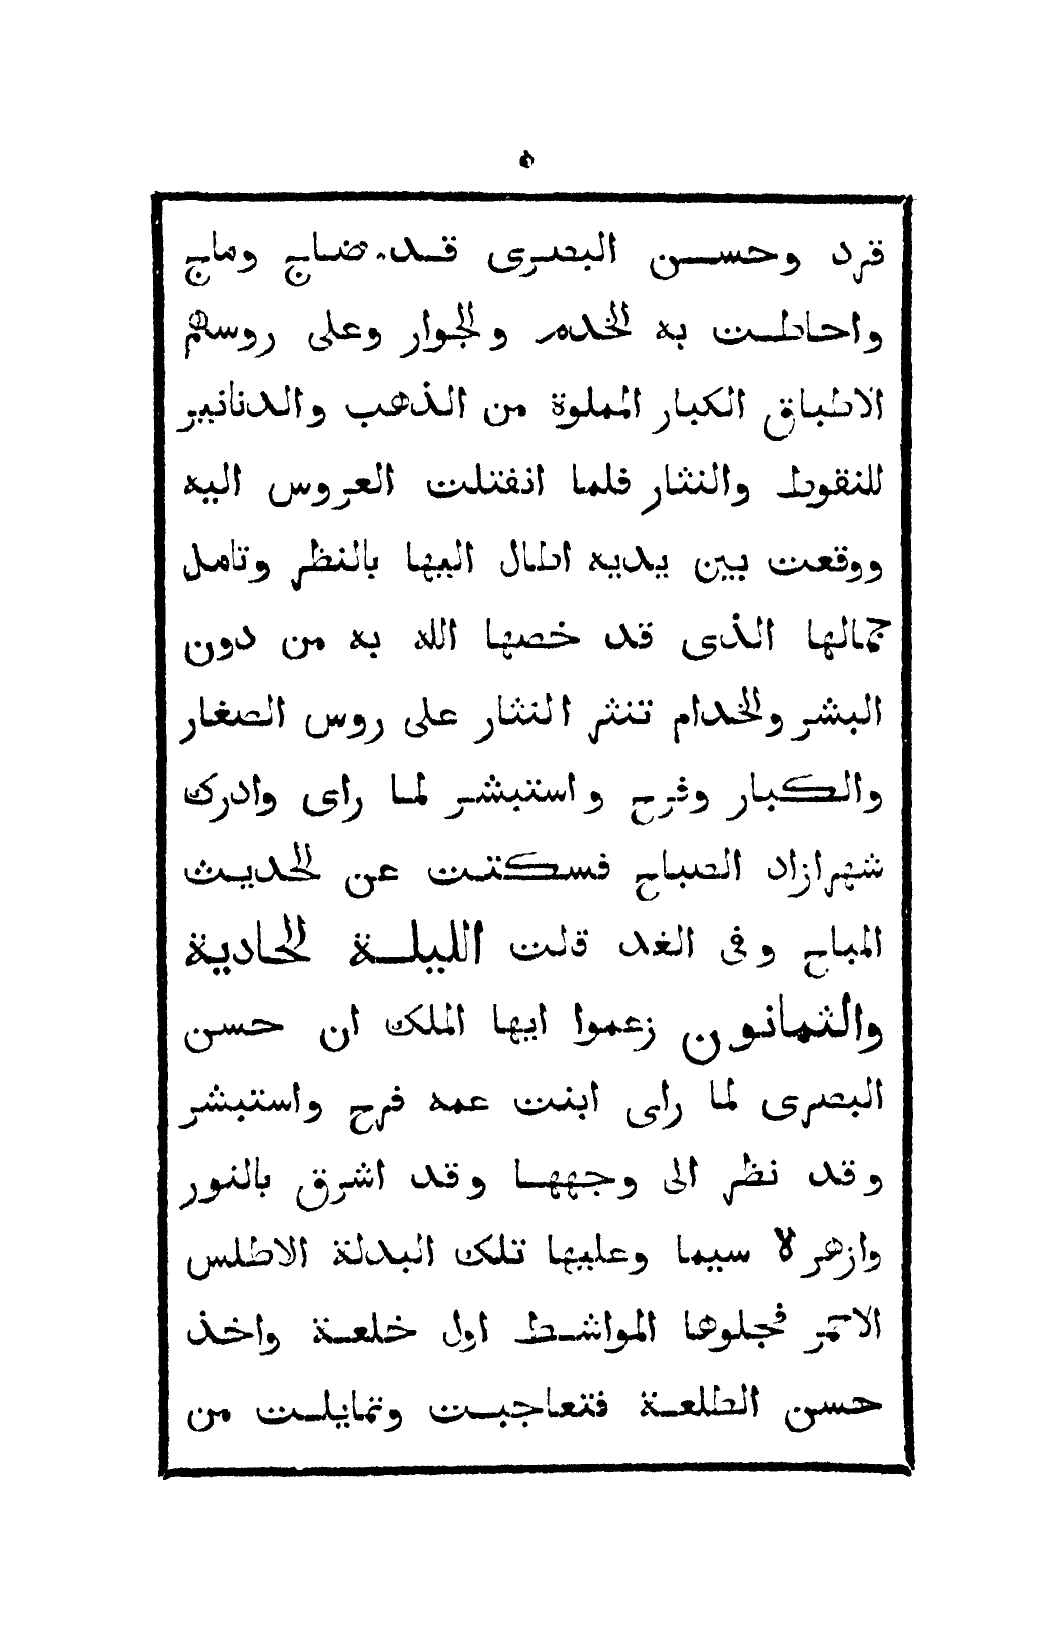 ٥
قرد وحسن البصرى قد ضاج وماج
واحاطت به الخدم والجوار وعلى روسهم
الاطباق الكبار المملوة من الذهب والدنانير
للنقوط والنثار فلما انفتلت العروس اليه
ووقعت بين يديه اطال اليها بالنظر وتامل
جمالها الذى قد خصها الله به من دون
البشر والخدام تنثر النثار على روس الصغار
والكبار وفرح واستبشر لما راى وادرك
شهرازاد الصباح فسكتت عن الحديث
المباح وفى الغد قلت الليلة الحادية
والثمانون زعموا ايها الملك ان حسن
البصرى لما راى ابنت عمه فرح واستبشر
وقد نظر الى وجهها وقد اشرق بالنور
وازهر لا سيما وعليها تلك البدلة الاطلس
الاحمر فجلوها المواشط اول خلعة واخذ
حسن الطلعة فتعاجبت وتمايلت من